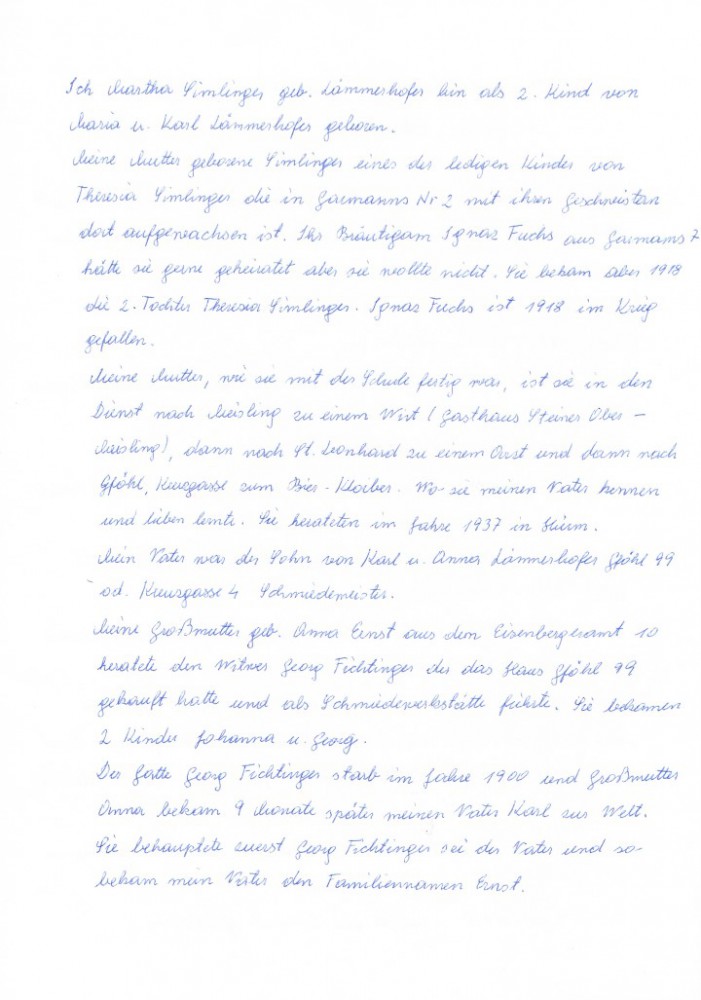 Ich Martha Simlinger geb. Lämmerhofer bin als 2. Kind von
Maria u. Karl Lämmerhofer geboren.
Meine Mutter geborene Simlinger eines der ledigen Kinder von
Theresia Simlinger die in Garmanns Nr 2 mit ihren Geschwistern
dort aufgewachsen ist. Ihr Bräutigam Ignaz Fuchs aus Garmanns 7
hätte sie gerne geheiratet aber sie wollte nicht. Sie bekam aber 1918
die 2. Tochter Theresia Simlinger. Ignaz Fuchs ist 1918 im Krieg
gefallen.
Meine Mutter, wie sie mit der Schule fertig war, ist sie in den
Dienst nach Meisling zu einem Wirt (Gasthaus Steiner Ober-
Maisling), dann nach St. Leonhard zu einem und dann nach
Gföhl, Kreuzgasse zum Bier-Kloiber. Wo sie meinen Vater kennen
und lieben lernte. Sie herateten im Jahre 1937 in
Mein Vater war der Sohn von Karl u. Anna Lämmerhofer Gföhl 99
od. Kreuzgasse 4 Schmiedemeister.
Meine Großmutter geb. Anna Ernst aus dem Eisenbergeramt 10
heratete den Witwer Georg Fichtinger der das Haus Gföhl 99
gekauft hatte und als Schmiedewerkstätte führte. Sie bekamen
2 Kinder Johanna u. Georg.
Der Gatte Georg Fichtinger starb im Jahre 1900 und Großmutter
Anna bekam 9 Monate später meinen Vater Karl zur Welt.
Sie behauptete zuerst Georg Fichtinger sei der Vater und so
bekam mein Vater den Familiennamen Ernst.